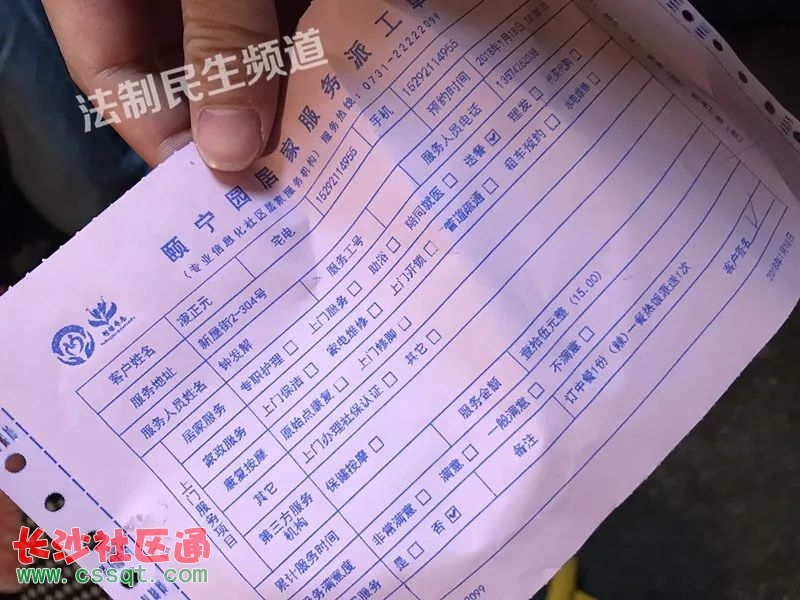 法制民生频道
颐宁园居家服务派工单
(专业信息化社区居家服务机构) 服务热线:0731-22222099
客户姓名 凌正元 宅电 15292114955 手机 15292114955 预约时间
服务地址 新屋街2-304号
服务人员姓名 钟发解 服务工号 服务人员电话
上门服务项目
居家服务 专职护理□ 上门服务□ 助浴□ 陪同就医□ 送餐☑ 理发□
家政服务 上门保洁□ 家电维修□ 上门开锁□ 管道疏通□ 租车预约□
康复按摩 原始点康复□ 上门修脚□
其它 上门办理社保认证□ 其它□
第三方服务机构 保健按摩□
累计服务时间 服务金额 壹拾伍元整 (15.00)
非常满意□ 满意□ 一般满意□ 不满意□
是□ 否☑ 备注
客户签名
2018年1月18日
长沙社区通
www.cssqt.com